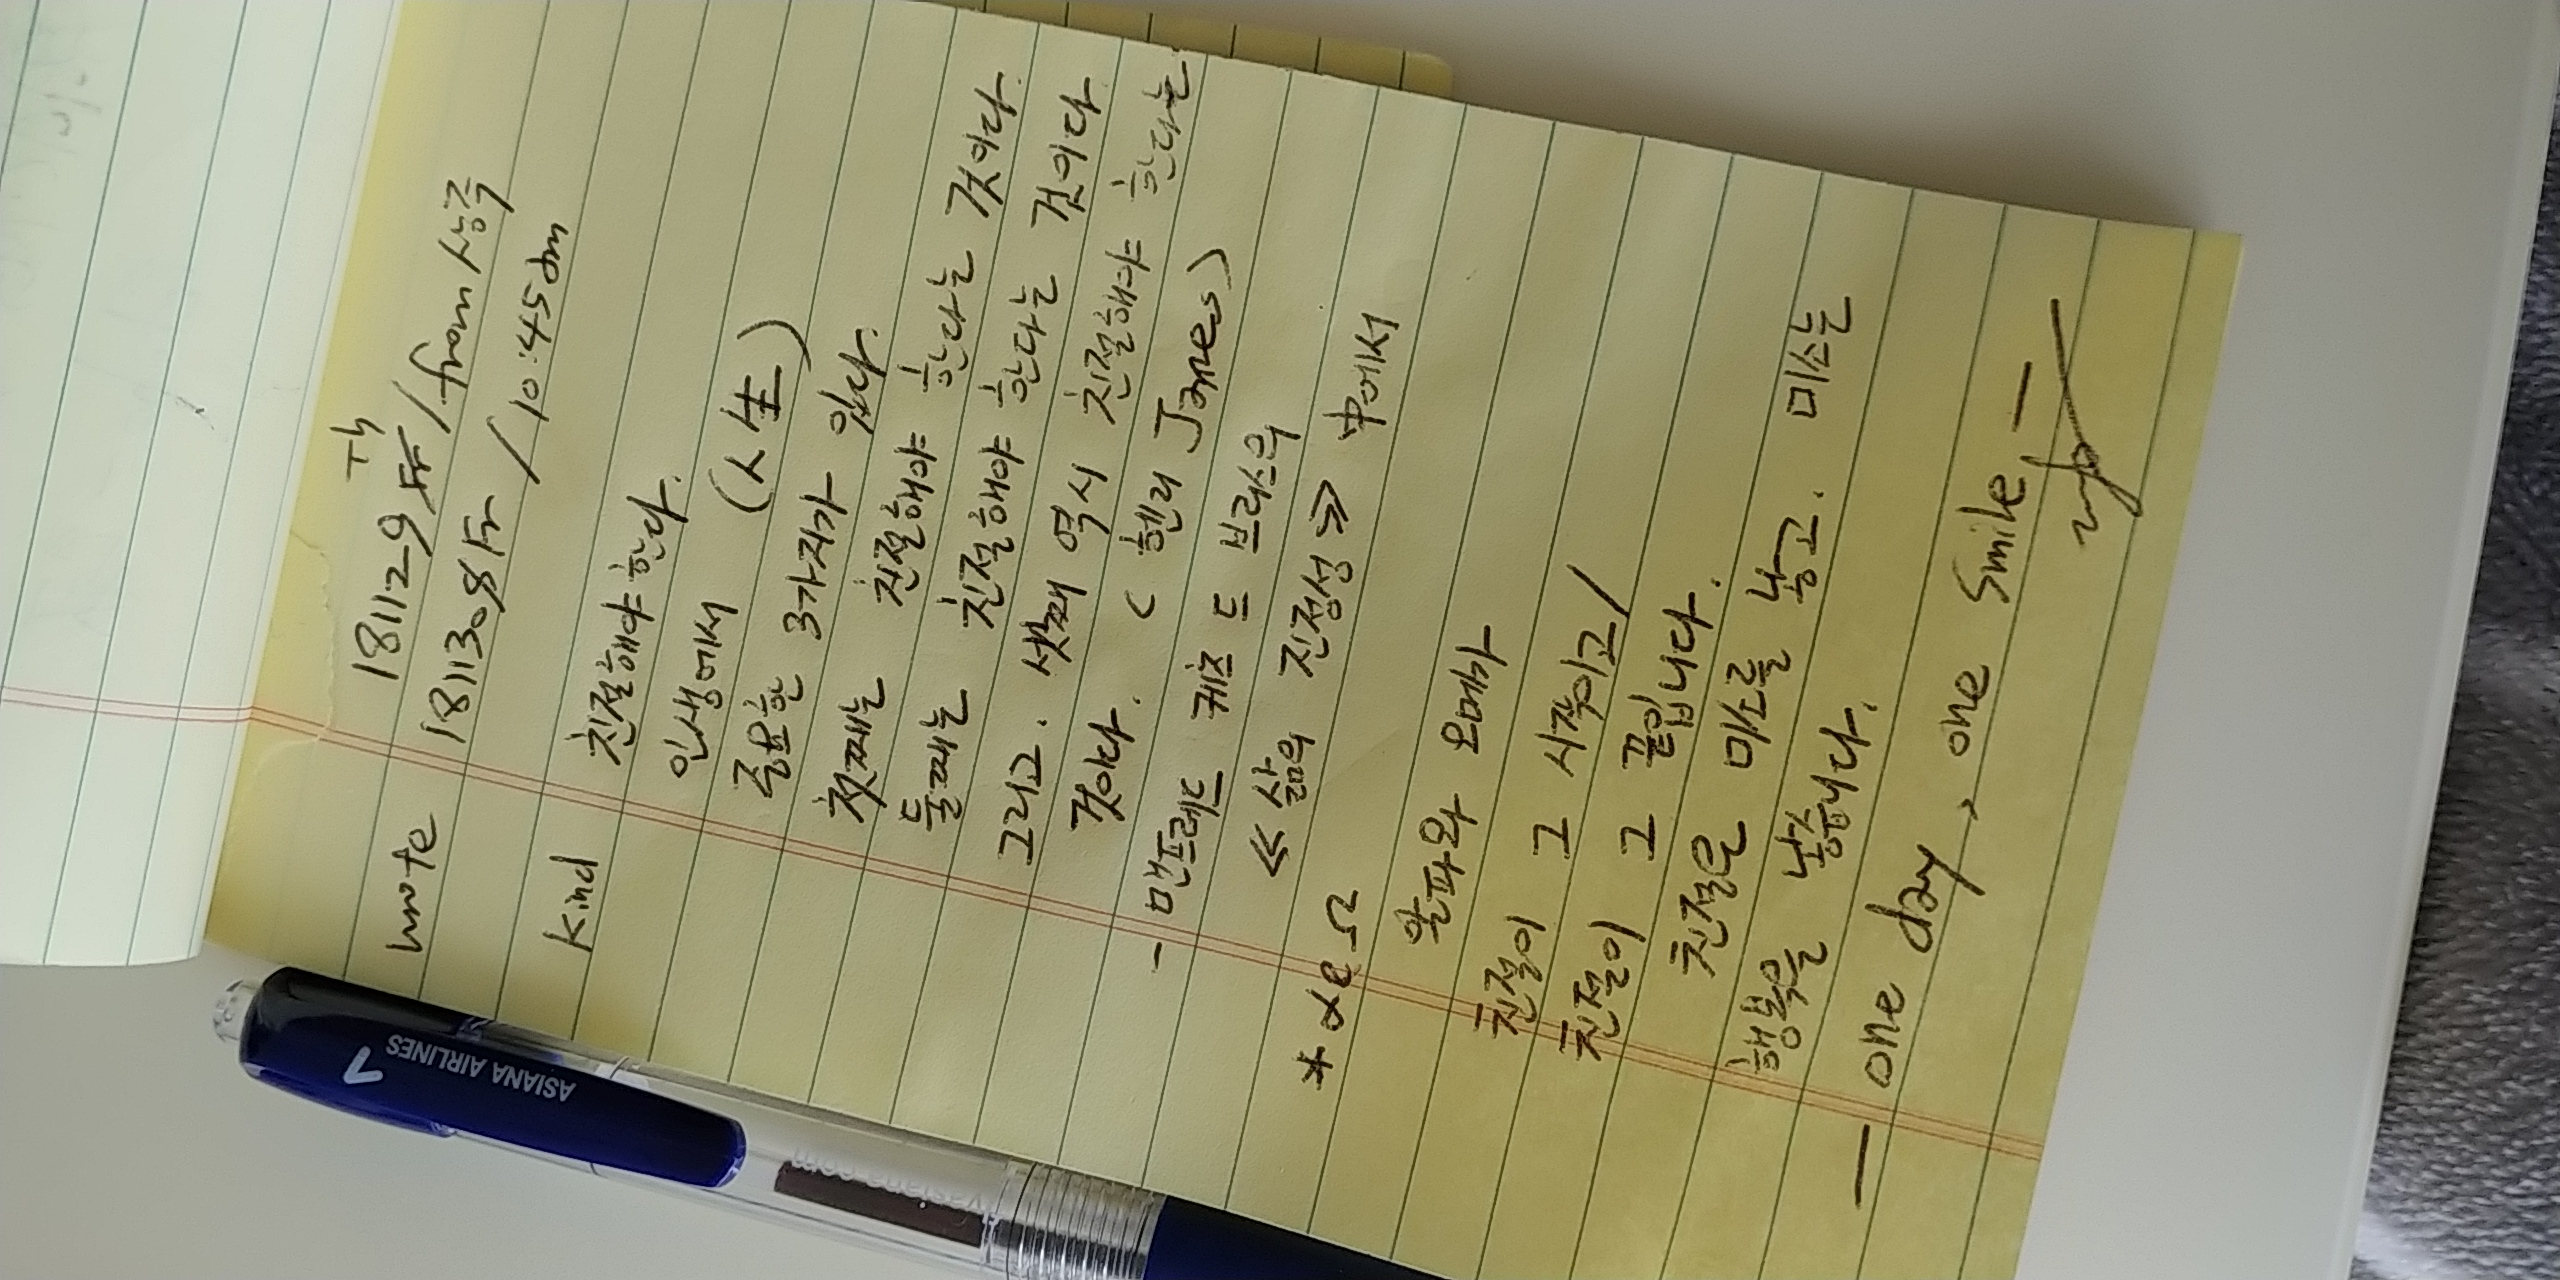 wrote 181129 Fr Th / from 상주
181130 & Fr / 10:45am
Kind 친절해야 한다.
인생에서 (人生)
중요한 3가지가 있다.
첫째는 친절해야 한다는 것이다.
둘째는 친절해야 한다는 것이다
그리고. 셋째 역시 친절해야 한다는
것이다. < 헨리 James>
- 맨프레드 케츠 드 브리스의
≪ 삶의 진정성 ≫ 中에서
* α & Ω
알파와 오메가
친절이 그 시작이고 /
친절이 그 끝입니다.
친절은 미소를 낳고. 미소는
행복을 낳습니다.
— one day, one smile —
ASIANA AIRLINES
flyasiana.com